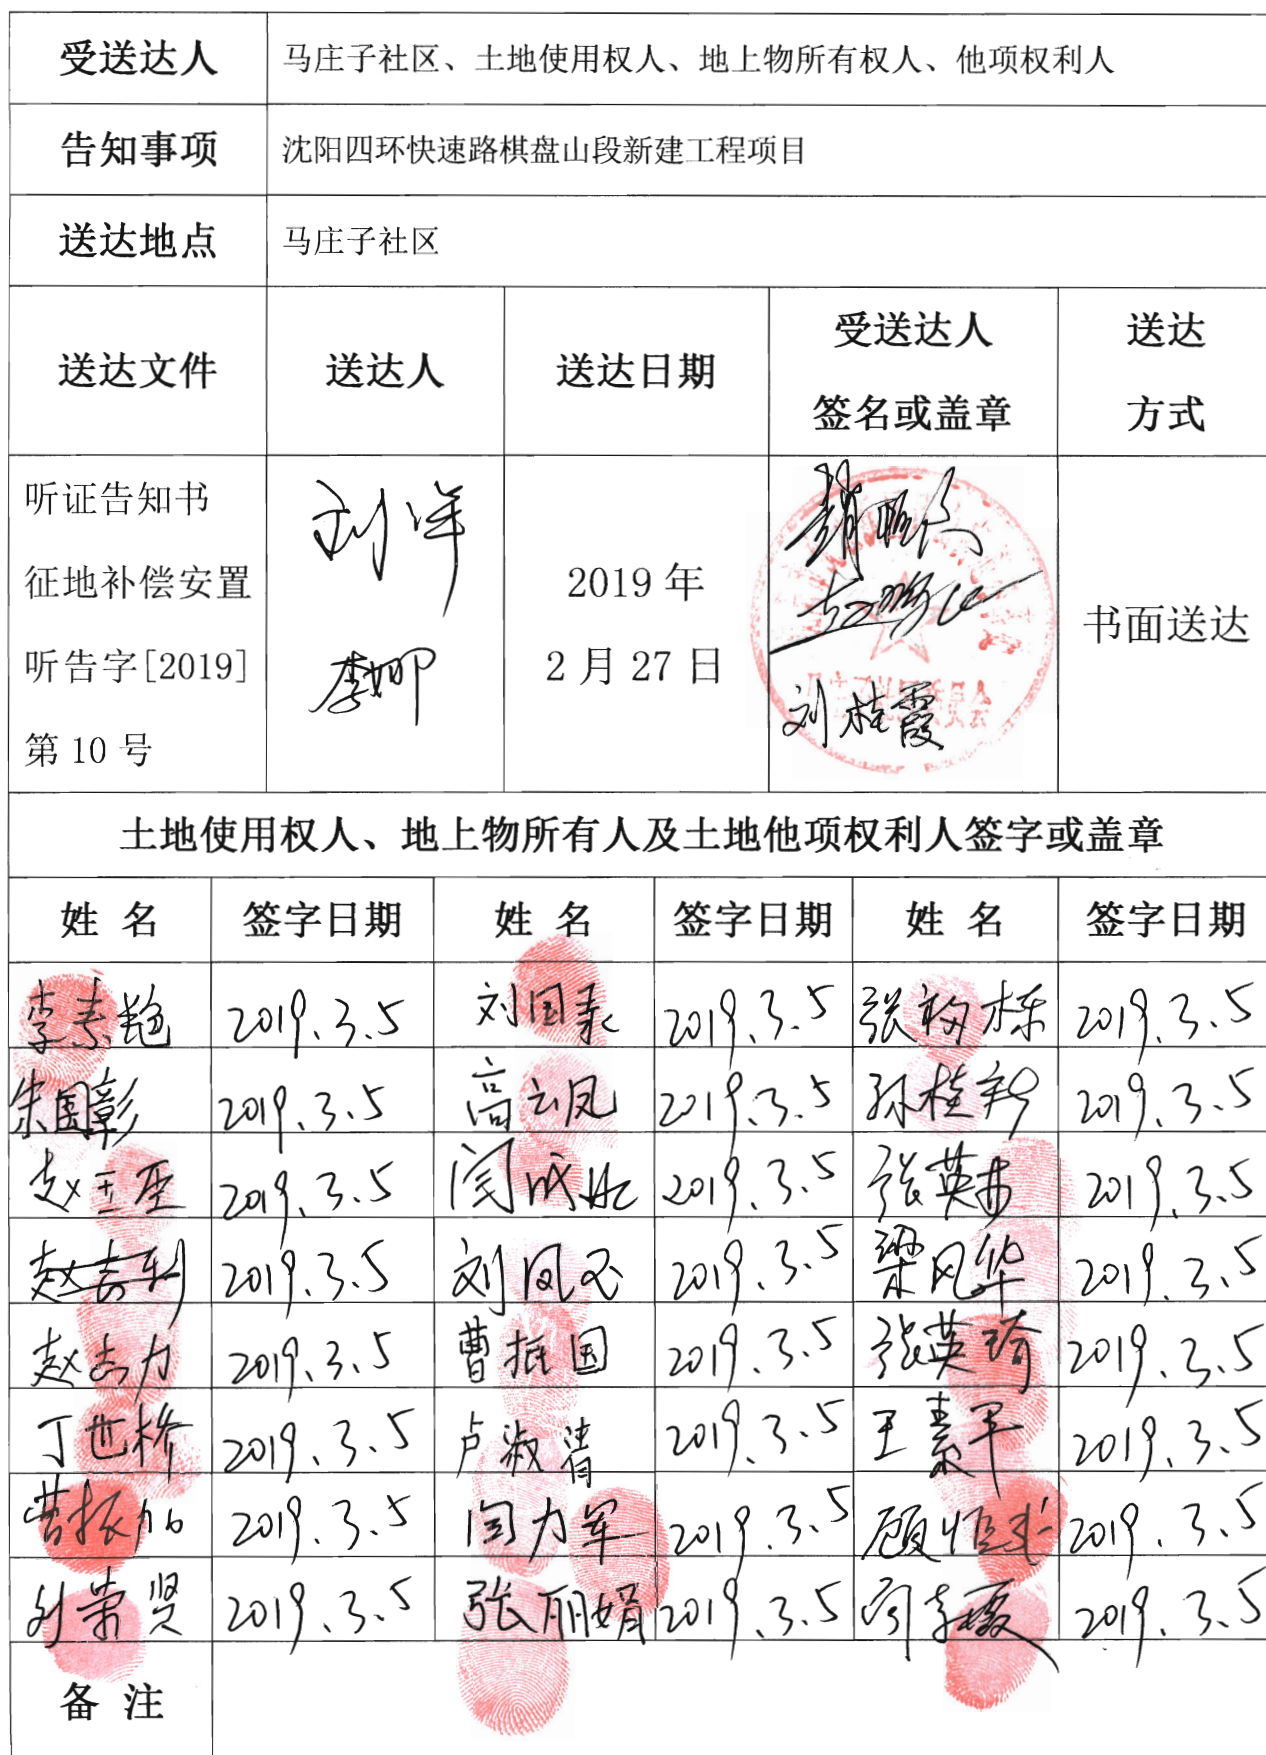 受送达人 马庄子社区、土地使用权人、地上物所有权人、他项权利人
告知事项 沈阳四环快速路棋盘山段新建工程项目
送达地点 马庄子社区
送达文件 送达人 送达日期 受送达人签名或盖章 送达方式
听证告知书
征地补偿安置
听告字[2019]
第 10 号
刘洋
李娜
2019 年
2 月 27 日
刘桂霞
书面送达
土地使用权人、地上物所有人及土地他项权利人签字或盖章
姓 名 签字日期 姓 名 签字日期 姓 名 签字日期
李素艳 2019.3.5 刘国 2019.3.5 张 栋 2019.3.5
朱国彰 2019.3.5 高云凤 2019.3.5 孙桂 2019.3.5
赵玉 2019.3.5 闫成 2019.3.5 张英 2019.3.5
赵志利 2019.3.5 刘凤 2019.3.5 梁凤华 2019.3.5
赵志力 2019.3.5 曹振国 2019.3.5 张英琦 2019.3.5
丁世桥 2019.3.5 卢淑清 2019.3.5 王素平 2019.3.5
曹振 2019.3.5 闫力军 2019.3.5 顾恒 2019.3.5
荣贤 2019.3.5 张丽娟 2019.3.5 2019.3.5
备 注